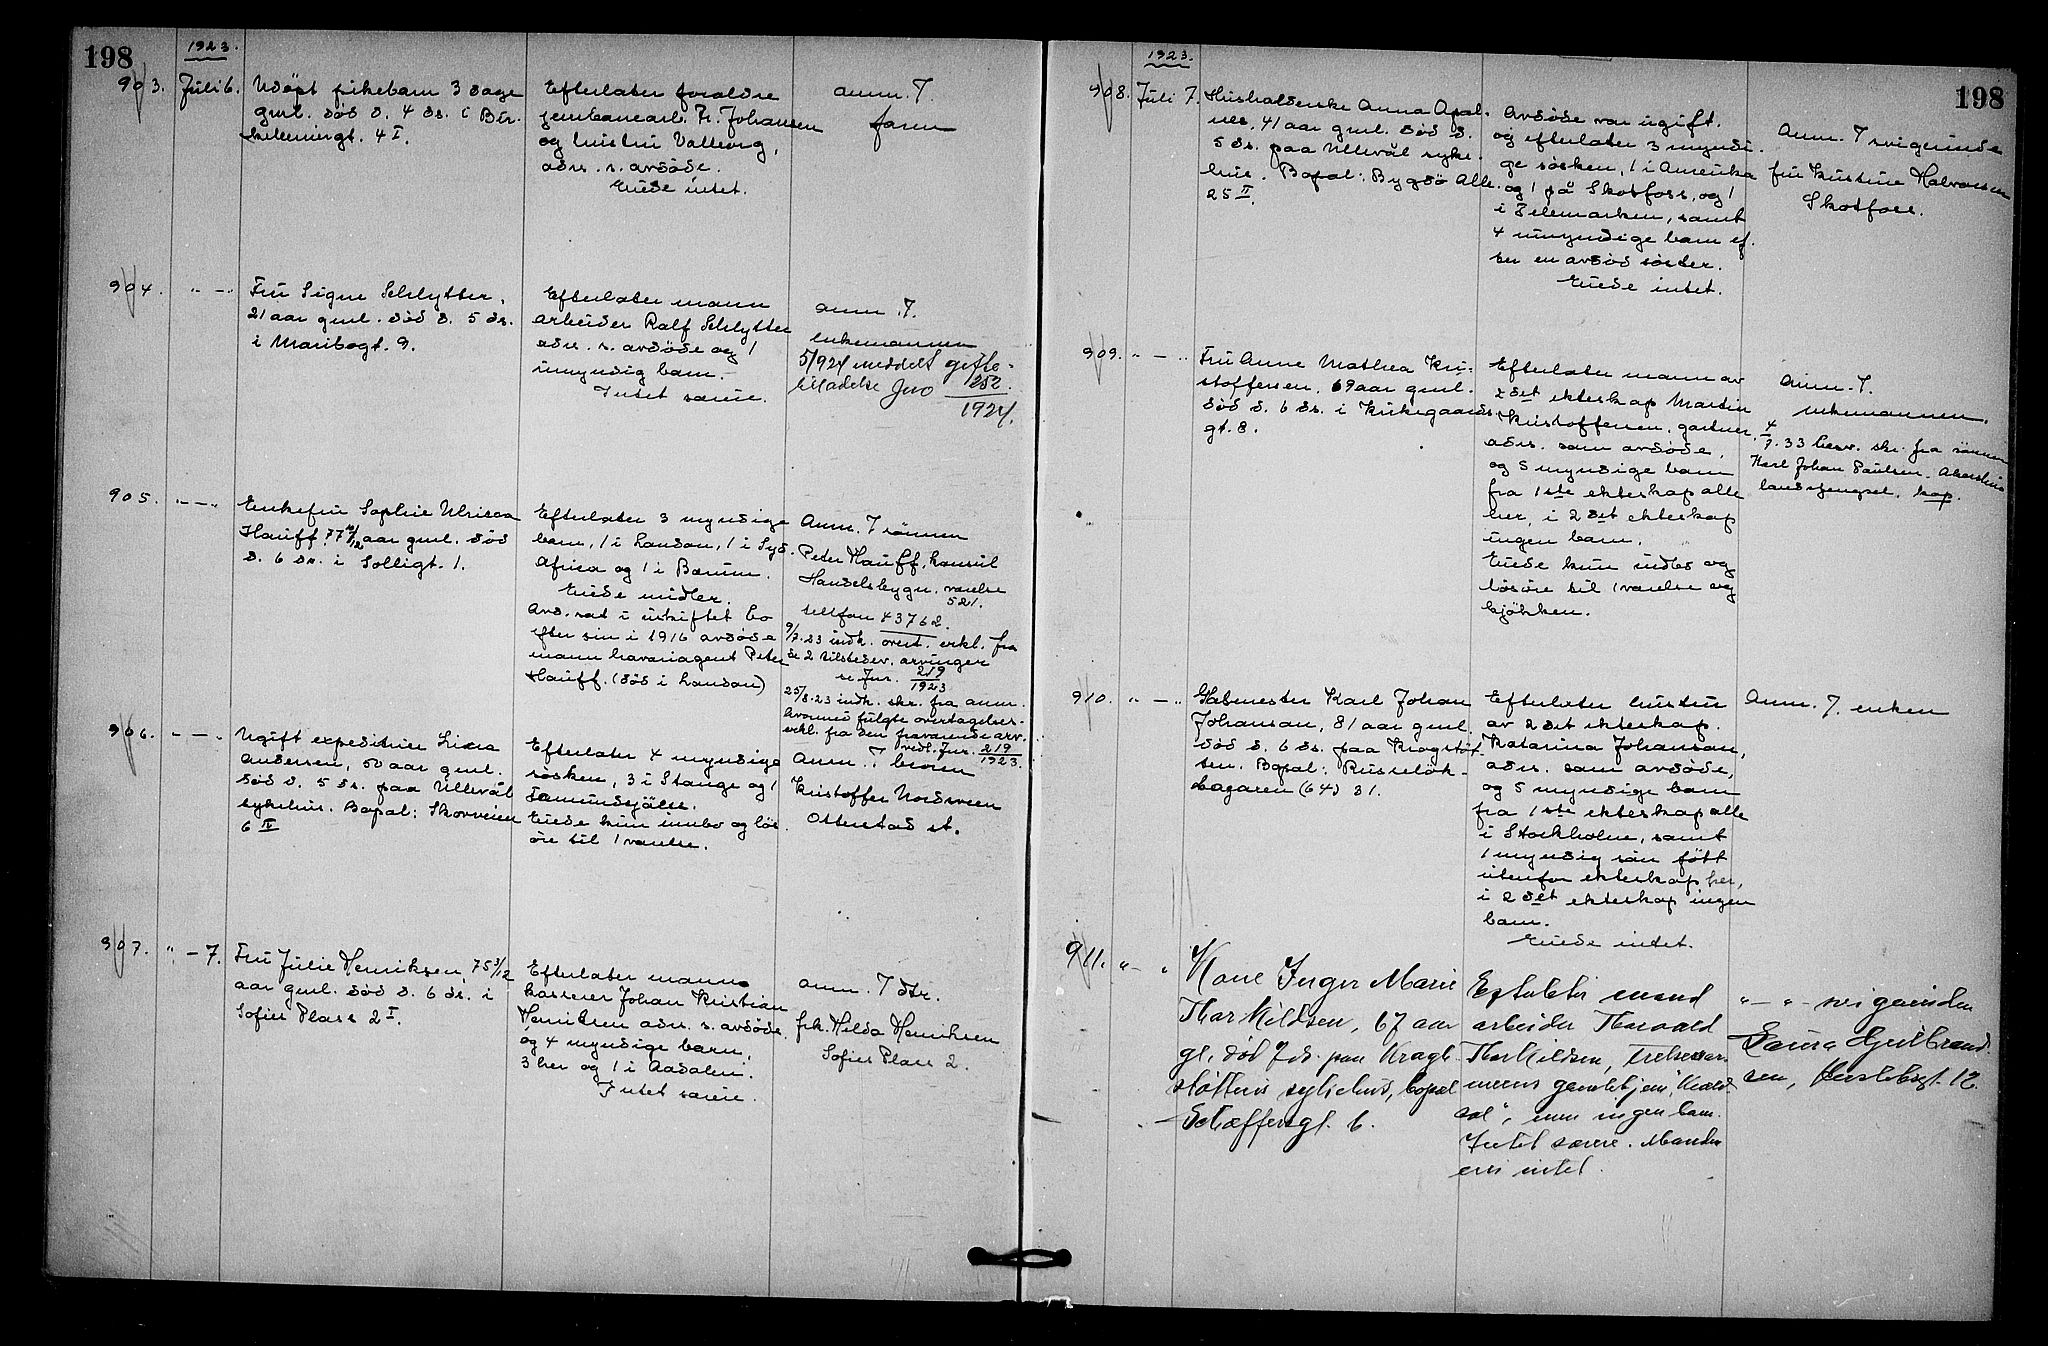 198
1923.
903. Juli 6.
Udöpt pikebarn 3 dage
gml. död d. 4 ds. i Bir-
kelunngt. 4 I.
Efterlater foraldre
jernbanearb. Fr. Johansen
og hustru Valborg,
adrs. s. avdöde.
Eiede intet.
anm. 7.
faren
904. " — "
Fru Signe Schlytter,
21 aar gml. död d. 5 ds.
i Maribogt. 9.
Efterlater mann
arbeider Ralf Schlytter
adr. s. avdöde og 1
umyndig barn.
Intet særeie.
anm. 7.
enkemannen
5/924 meddelt gifte-
tilladelse Jno 252
1924.
905. " — "
Enkefru Sophie Ulricca
Hauff, 77 aar gml. död
d. 6 ds. i Solligt. 1.
Efterlater 3 myndige
barn, 1 i London, 1 i Syd.
Africa og 1 i Bærum.
Eiede midler.
Avd. sad i uskiftet bo
efter sin i 1916 avdöde
mann havariagent Peter
Hauff. (död i London)
Anm. 7 sönnen
Peter Hauff, konsul
Handelsbygn. værelse
521.
telefon 43762.
9/7.23 indk. overt. erkl. fra
de 2 tilstedev. arvinger
se Jnr. 219
1923
25/8.23 indk. skr. fra anm.
hvormed fulgte overtagelses-
erkl. fra den fraværende arv.
vedl. Jnr. 219
1923.
906. " — "
Ugift expeditrice Lina
Andersen, 50 aar gml.
död d. 5 ds. paa Ullevål
sykehus. Bopal: Skovveien
6 II
Efterlater 4 myndige
sösken, 3 i Stange og 1
Eiede kun innbo og lös-
öre til 1 værelse.
Anm. 7 broren
Kristoffer Nordsveen
Ottestad st.
907. " — 7.
Fru Julie Henriksen, 75 3/12
aar gml. död d. 6 ds. i
Sofies Plass 2 I.
Efterlater mann
kasserer Johan Kristian
Henriksen adr. s. avdöde.
og 4 myndige barn,
3 her og 1 i Aadalen.
Intet særeie.
anm. 7 dtr.
frk. Hilda Henriksen
Sofies Plass 2.
1923.
198
908. Juli 7.
Husholderske Anna Apal-
nes, 41 aar gml. död d.
5 ds. paa Ullevål syke-
hus. Bopal: Bygdö Alle.
25 II.
Avdöde var ugift.
og efterlater 3 myndi-
ge sösken, 1 i Amerika
og 1 på Skotfoss, og 1
i Telemarken, samt
4 umyndige barn ef-
ter en avdöd söster.
Eiede intet.
Anm. 7 svigerinde
fru Kristine Halvorsen
Skotfoss.
909. " — "
Fru Anne Mathea Kri-
stoffersen, 69 aar gml.
död d. 6 ds. i Kirkegaards
gt. 8.
Efterlater mann av
2det ekteskap Martin
Kristoffersen, gartner,
adrs. som avdöde,
og 5 myndige barn
fra 1ste ekteskap alle
her, i 2det ekteskap
ingen barn.
Eiede kun indbo og
lösöre til 1 værelse og
kjökken.
Anm. 7.
enkemannen.
4/7.33 besv. skr. fra sönnen
Karl Johan Paulsen, Akershus
landsfengsel. kop.
910. " — "
Gadmester Karl Johan
Johanson, 81 aar gml.
död d. 6 ds. paa Krogstöt-
ten. Bopal: Russelök-
bagaren (64) 31.
Efterlater hustru
av 2det ekteskap.
Katarina Johanson,
adrs. som avdöde,
og 5 myndige barn
fra 1ste ekteskap alle
i Stockholm, samt
1 myndig sön född
utenfor ekteskap her,
i 2det ekteskap ingen
barn.
Eiede intet.
Anm. 7. enken
911. " — "
Kone Inger Marie
Thorkildsen, 67 aar
gl. död 7 ds. paa Kragh-
støttens sykehus, bopæl
Schæffersgt. 6.
Efterlater mand
arbeider Thorvald
Thorkildsen,
gamlehjem,
men ingen barn.
Intet særeie. Manden
eier intet.
" — " svigerinden
Laura Gulbrand-
sen, 12.